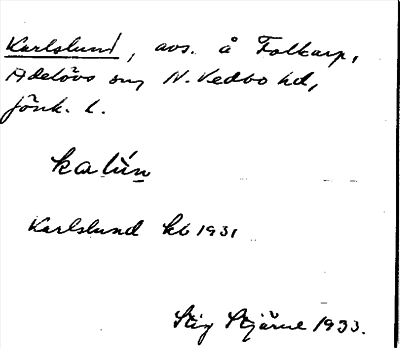 Karlslund, avs. å Folkarp,
Adelövs sn, N. Vedbo hd,
Jönk. l.
kalún
Karlslund kb 1931
Stig Stjärne 1933.